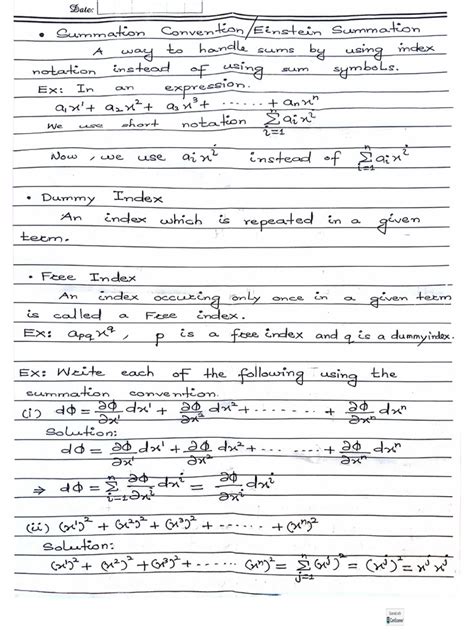 Date:
• Summation Convention/Einstein Summation
A way to handle sums by using index
notation instead of using sum symbols.
Ex: In an expression.
a₁x¹ + a₂x² + a₃x³ + ...... + aₙxⁿ
We use short notation Σⁿᵢ₌₁ aᵢxⁱ
Now, we use aᵢxⁱ instead of Σⁿᵢ₌₁ aᵢxⁱ
• Dummy Index
An index which is repeated in a given
term.
• Free Index
An index occuring only once in a given term
is called a Free index.
Ex: a_pq x^q, p is a free index and q is a dummy index.
Ex: Write each of the following using the
summation convention.
(i) dΦ = ∂Φ/∂x¹ dx¹ + ∂Φ/∂x² dx² + ....... + ∂Φ/∂xⁿ dxⁿ
Solution:
dΦ = ∂Φ/∂x¹ dx¹ + ∂Φ/∂x² dx² + ...... + ∂Φ/∂xⁿ dxⁿ
⇒ dΦ = Σⁿᵢ₌₁ ∂Φ/∂xⁱ dxⁱ = ∂Φ/∂xⁱ dxⁱ
(ii) (x¹)² + (x²)² + (x³)² + ...... + (xⁿ)²
Solution:
(x¹)² + (x²)² + (x³)² + ...... (xⁿ)² = Σⁿⱼ₌₁ (xʲ)² = (xʲ)² = xʲ xʲ
CamScanner